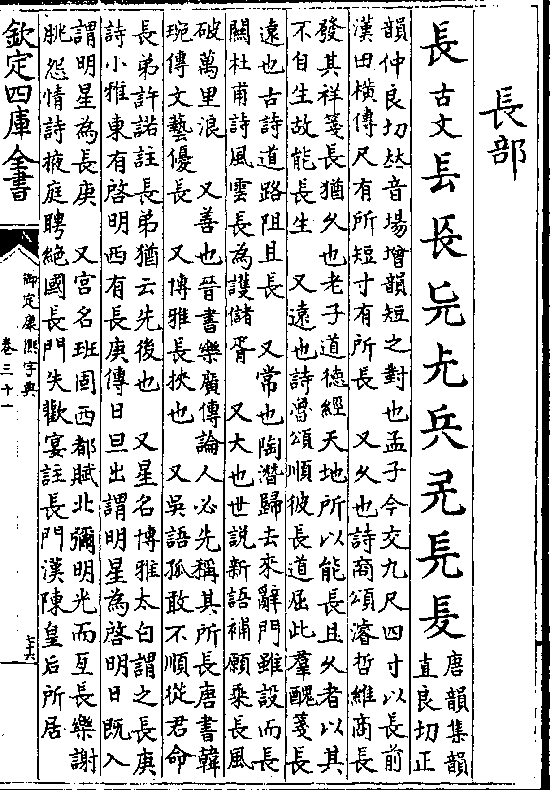 長部
長 古文 镸 𠑷 𠑿 兂 兵 兏 镹 𨱗 唐韻集韻
直良切正
韻仲良切𠀤音場增韻短之對也孟子今交九尺四寸以長前
漢田橫傳尺有所短寸有所長 又久也詩商頌濬哲維商長
發其祥箋長猶久也老子道德經天地所以能長且久者以其
不自生故能長生 又遠也詩魯頌順彼長道屈此羣醜箋長
遠也古詩道路阻且長 又常也陶潛歸去來辭門雖設而長
關杜甫詩風雲長為護儲胥 又大也世說新語補願乘長風
破萬里浪 又善也晉書樂廣傳論人必先稱其所長唐書韓
琬傳文藝優長 又博雅長挾也 又吳語孤敢不順從君命
長弟許諾註長弟猶云先後也 又星名博雅太白謂之長庚
詩小雅東有啓明西有長庚傳日旦出謂明星為啓明日既入
謂明星為長庚 又宮名班固西都賦北彌明光而亙長樂謝
朓怨情詩掖庭聘絕國長門失歡宴註長門漢陳皇后所居
欽定四庫全書
御定康熙字典
卷三十一